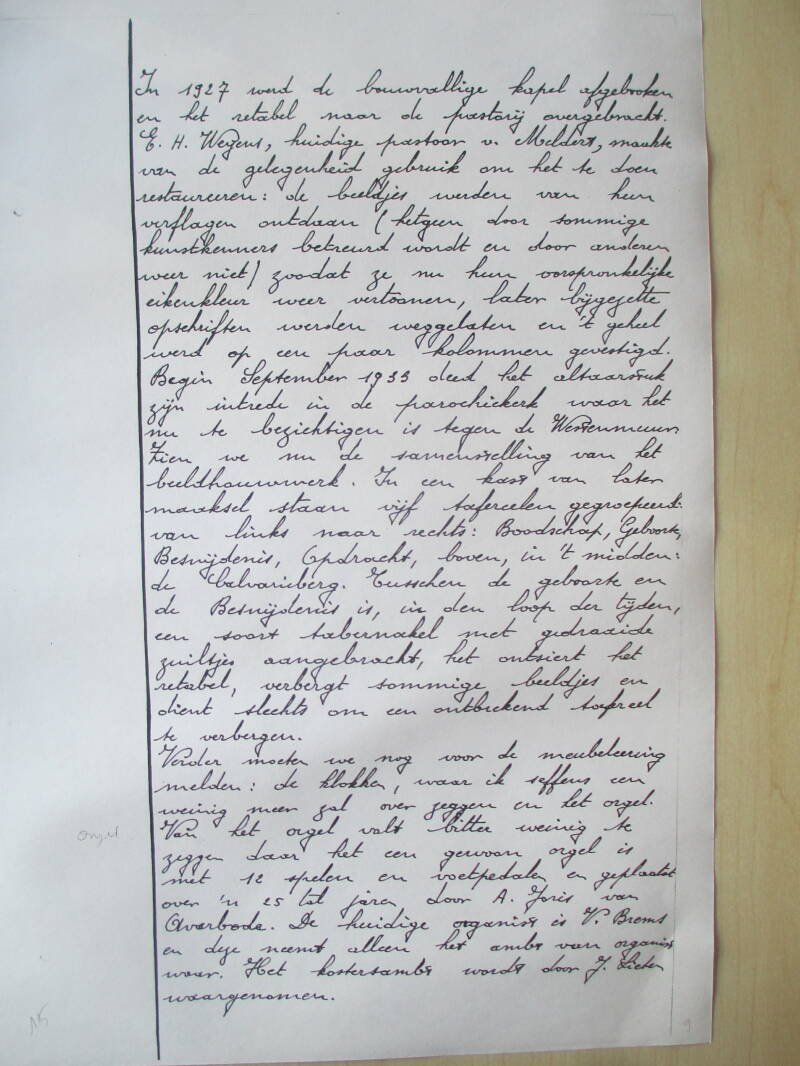 In 1927 werd de bouwvallige kapel afgebroken
en het retabel naar de pastorij overgebracht.
E. H. Weyens, huidige pastoor v. Meldert, maakte
van de gelegenheid gebruik om het te doen
restaureeren: de beeldjes werden van hun
verflagen ontdaan (hetgeen door sommige
kunstkenners betreurd wordt en door anderen
weer niet) zoodat ze nu hun oorspronkelijke
eikenkleur weer vertoonen, later bijgezette
opschriften werden weggelaten en 't geheel
werd op een paar kolommen gevestigd.
Begin September 1933 deed het altaarstuk
zijn intrede in de parochiekerk waar het
nu te bezichtigen is tegen de Westenmuur.
Zien we nu de samenstelling van het
beeldhouwwerk. In een kast van later
maaksel staan vijf tafereelen gegroepeerd:
van links naar rechts: Boodschap, Geboorte,
Besnijdenis, Opdracht, boven, in 't midden:
de Calvarieberg. Tusschen de geboorte en
de Besnijdenis is, in den loop der tijden,
een soort tabernakel met gedraaide
zuiltjes aangebracht, het ontsiert het
retabel, verbergt sommige beeldjes en
dient slechts om een ontbrekend tafereel
te verbergen.
Verder moeten we nog voor de meubeleering
melden: de klokken, waar ik seffens een
weinig meer zal over zeggen en het orgel.
orgel
Van het orgel valt bitter weinig te
zeggen daar het een gewoon orgel is
met 12 spelen en voetpedalen en geplaatst
over 'n 25 tal jaren door A. Joris van
Averbode. De huidige organist is V. Brems
en deze neemt alleen het ambt van organist
waar. Het kostersambt wordt door J.
waargenomen.
9